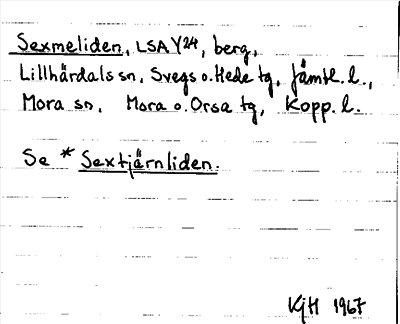 Sexmeliden, LSA Y24, berg,
Lillhärdals sn, Svegs o. Hede tg, Jämtl. l.,
Mora sn, Mora o. Orsa tg, Kopp. l.
Se * Sextjärnliden.
KjH 1967